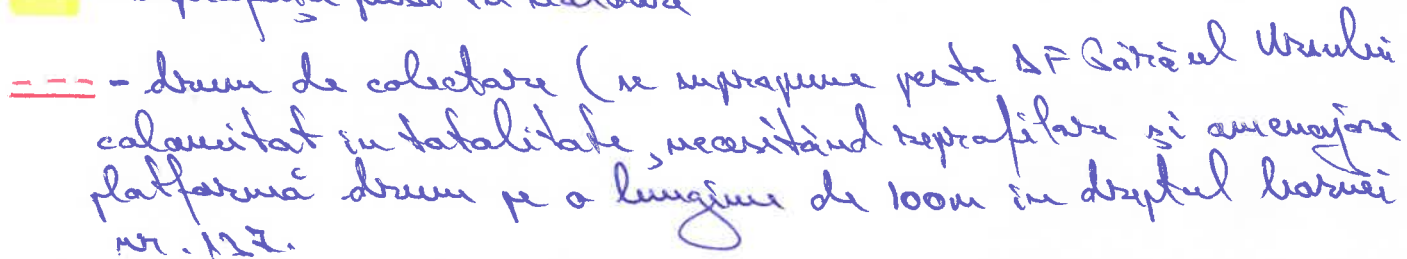 - drum de colectare (se suprapune peste DF Pârâul Ursului
calamitat in totalitate, necesitând reprofilare și amenajare
platformă drum pe o lungime de 100m in dreptul bornei
nr. 137.